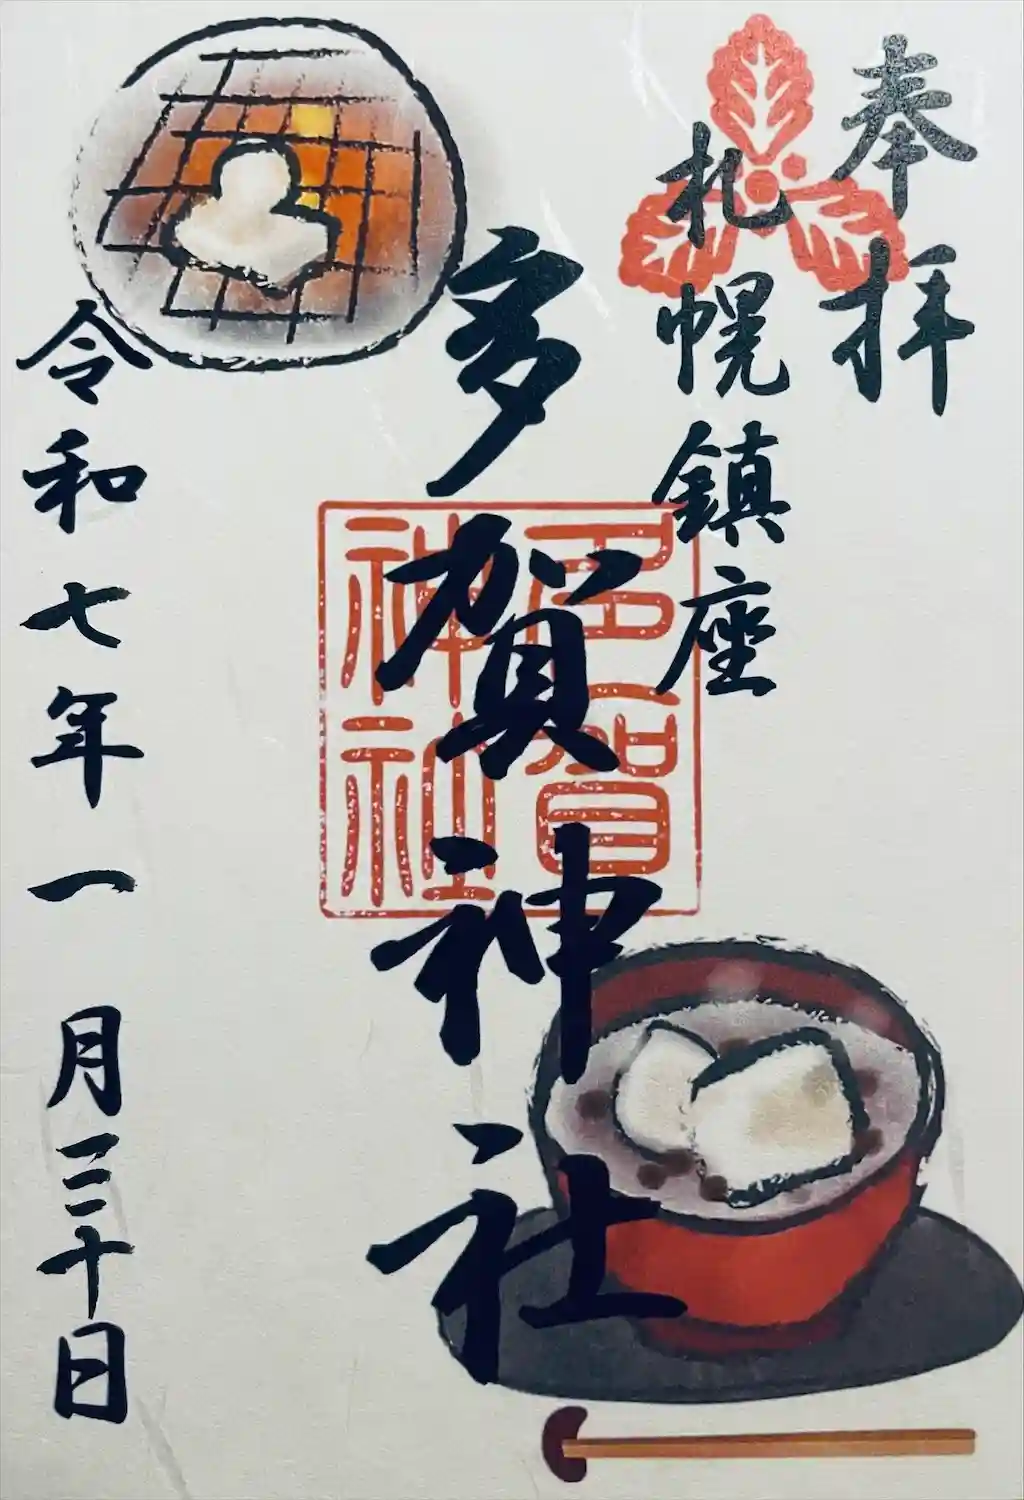 奉拝
札幌鎮座
多賀神社
多賀
神社
令和七年一月三十日